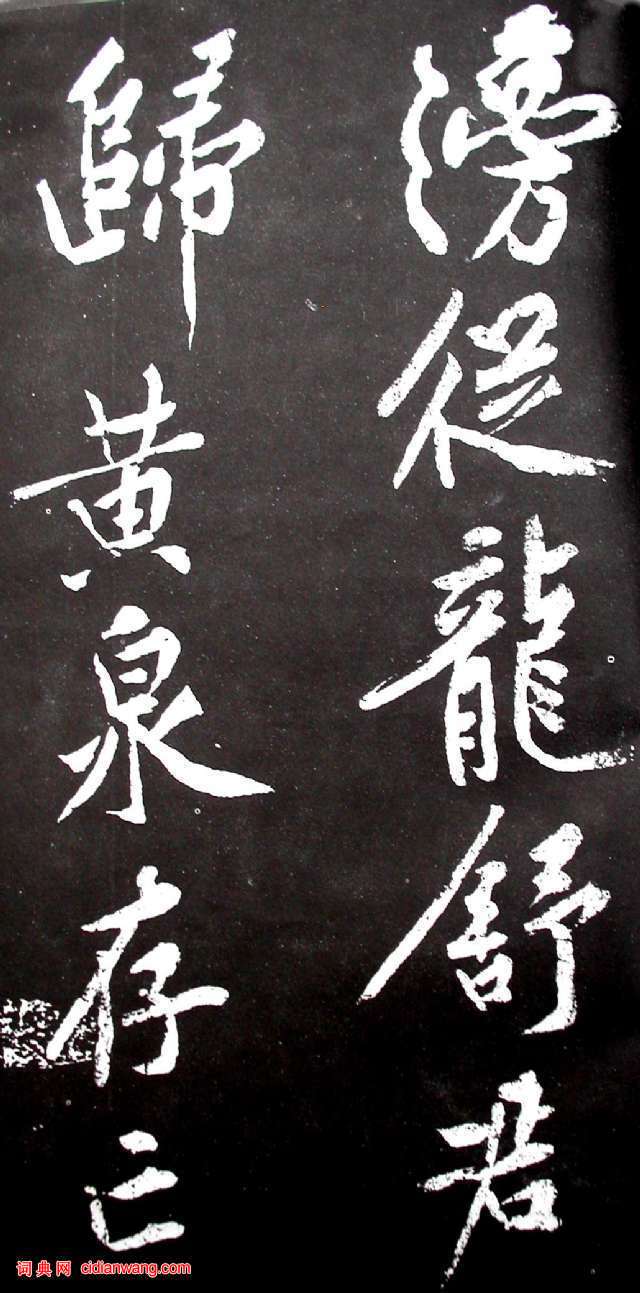 滂從龍舒君
歸黃泉存亡
词典网 cidianwang.com